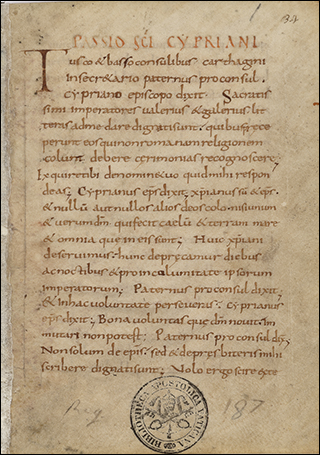 34
PASSIO SCI CYPRIANI
Tusco & basso consulibus carthagini
in secr&ario paternus proconsul.
cypriano episcopo dixit. Sacratis
simi imperatores valerius & galerius lit
teras ad me dare dignati sunt. quibus
perunt eos qui non romanam religionem
colunt debere cerimonias recognoscere
Exquire tibi de nomine quid mihi respon
deas; Cyprianus eps dixit; xpianus sum & eps.
& nullu aut nullos alios deos colo nisi unum
& verum dm qui fecit caelu & terram mare
& omnia que in eis sunt; Huic xpiani
deservimus. hunc deprecamur diebus
ac noctibus & pro incolumitate ipsorum
imperatorum; Paternus proconsul dixit;
& in hac voluntate perseveras; Cyprianus
eps dixit; Bona voluntas que dm novit. im
mutari non potest; Paternus proconsul dix;
Non solum de epis. sed & de presbiteris mihi
scribere dignati sunt; Volo ergo scire ex te
BIBLIOTHECA APOSTOLICA VATICANA
Reg.
187